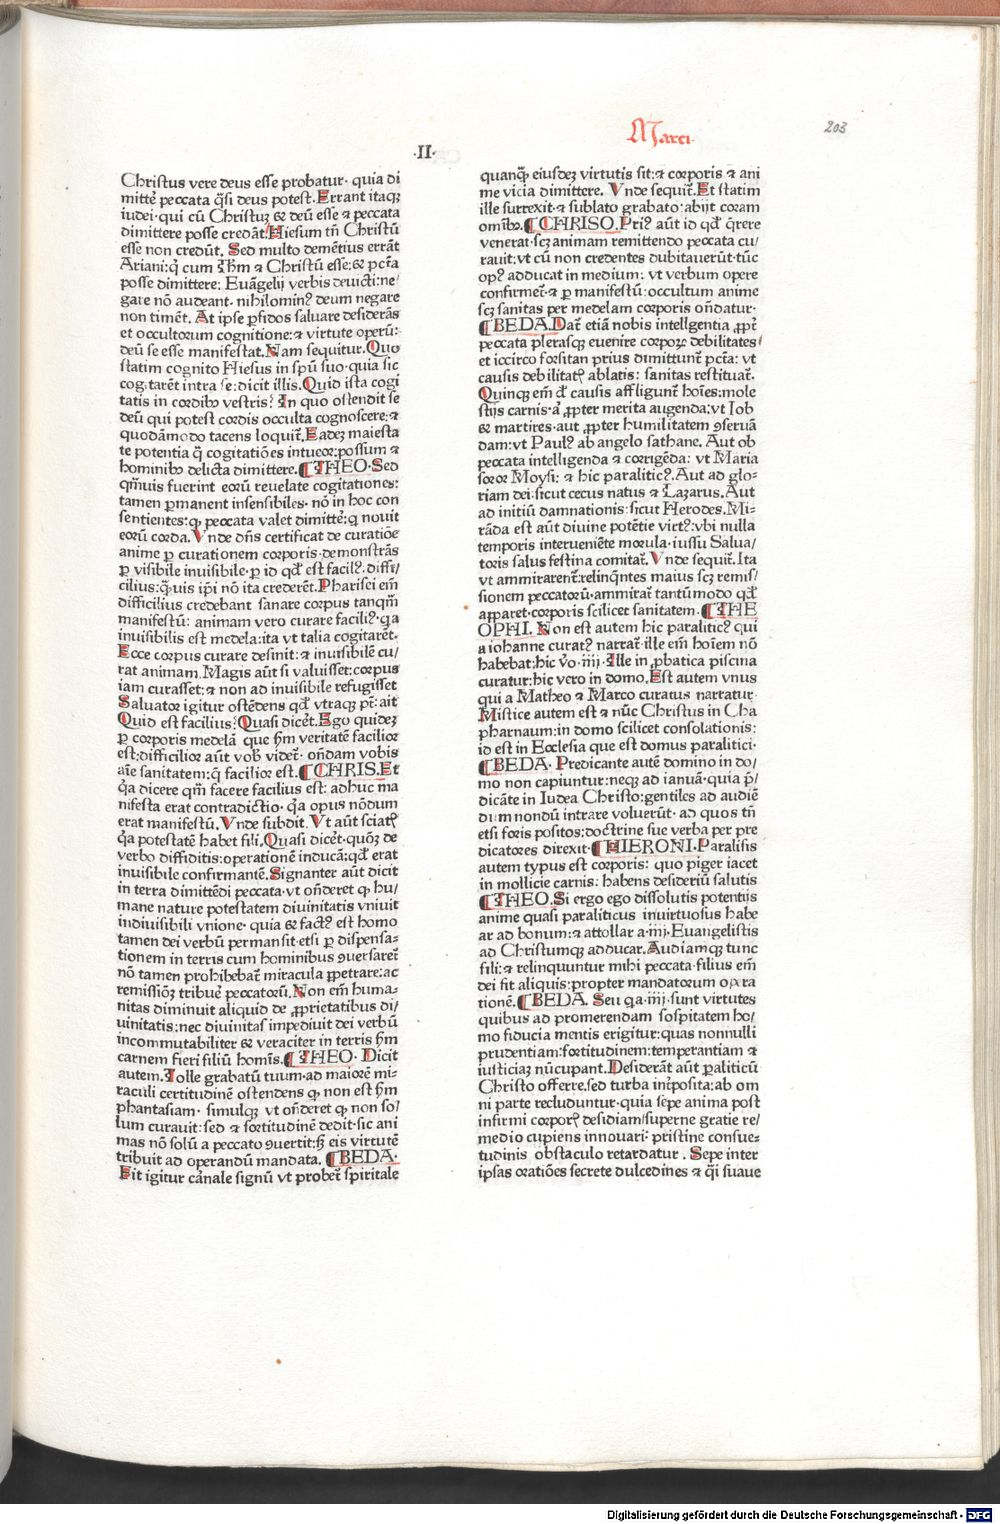 Marci.
203
·II·
Christus vere deus esse probatur· quia di
mittẽ peccata q̃si deus potest. Errant itaqꝫ
iudei·qui cũ Christuꝫ & deũ esse ⁊ peccata
dimittere posse credãt: Hiesum tñ Christũ
esse non credũt. Sed multo demẽtius errãt
Ariani: cum Ihm ⁊ Christũ esse:& pctã
posse dimittere: Euãgelij verbis deuicti:ne/
gare nõ audeant· nihilomin⁹ deum negare
non timẽt. At ipse ꝑfidos saluare desiderãs
et occultorum cognitione:⁊ virtute operũ:
deũ se esse manifestat. Nam sequitur. Quo
statim cognito Hiesus in spũ suo·quia sic
cogitarẽt intra se:dicit illis. Quid ista cogi
tatis in cordibꝰ vestris? In quo ostendit se
deũ qui potest cordis occulta cognoscere:⁊
quodãmodo tacens loquit̃. Eadeꝫ maiesta
te potentia q̃ cogitatiões intueor:possum ⁊
hominibꝰ delicta dimittere. ¶ THEO· Sed
q̃muis fuerint eorũ reuelate cogitationes:
tamen ꝑmanent insensibiles· nõ in hoc con
sentientes:ꝙ peccata valet dimittẽ:q̃ nouit
eorũ corda. Vnde dñs certificat de curatiõe
anime ꝑ curationem corporis·demonstrãs
ꝑ visibile inuisibile·ꝑ id qđ est facil⁹·diffi/
cilius:q̃uis ip̃i nõ ita crederẽt. Pharisei em̃
difficilius credebant sanare corpus tanqm̃
manifestũ: animam vero curare facili⁹·q̃a
inuisibilis est medela:ita vt talia cogitarẽt.
Ecce corpus curare desinit:⁊ inuisibilẽ cu/
rat animam. Magis aũt si valuisset:corpus
iam curasset:⁊ non ad inuisibile refugisset
Saluator igitur ostẽdens qđ vtraqꝫ pt̃:ait
Quid est facilius? Quasi dicẽt. Ego quideꝫ
ꝑ corporis medelã que hm̃ veritatẽ facilior
est:difficilior aũt vob̃ videt̃· oñdam vobis
aĩe sanitatem:q̃ facilior est. ¶ CHRIS. Et
q̃a dicere qm̃ facere facilius est: adhuc ma
nifesta erat contradictio· q̃a opus nõdum
erat manifestũ. Vnde subdit. Vt aũt sciatꝭ
q̃a potestatẽ habet fili⁹. Quasi dicẽt·quoꝫ de
verbo diffiditis:operationẽ inducã:qđ erat
inuisibile confirmantẽ. Signanter aũt dicit
in terra dimittẽdi peccata·vt oñderet ꝙ hu/
mane nature potestatem diuinitatis vniuit
indiuisibili vnione· quia & fact⁹ est homo
tamen dei verbũ permansit·etsi ꝑ dispensa-
tionem in terris cum hominibus ꝯuersaret̃
nõ tamen prohibebat̃ miracula ꝑpetrare:ac
remissiõꝫ tribuẽ peccatorũ. Non em̃ huma-
nitas diminuit aliquid de ꝓprietatibus di/
uinitatis:nec diuinitas impediuit dei verbũ
incommutabiliter & veraciter in terris hm̃
carnem fieri filiũ homĩs. ¶ THEO· Dicit
autem. Tolle grabatũ tuum·ad maiorẽ mi-
raculi certitudinẽ ostendens ꝙ non est hm̃
phantasiam· simulqꝫ vt oñderet ꝙ non so/
lum curauit:sed ⁊ fortitudinẽ dedit·sic ani
mas nõ solũ a peccato ꝯuertit:sꝫ eis virtutẽ
tribuit ad operandũ mandata. ¶ BEDA·
Fit igitur carnale signũ vt probet̃ spiritale
quanq̃ eiusdeꝫ virtutis sit:⁊ corporis ⁊ ani
me vicia dimittere. Vnde sequit̃. Et statim
ille surrexit·⁊ sublato grabato:abijt coram
omĩbꝰ. ¶ CHRISO. Pri⁹ aũt id qđ q̃rere
venerat·scꝫ animam remittendo peccata cu/
rauit:vt cũ non credentes dubitauerũt·tũc
op⁹ adducat in medium: vt verbum opere
confirmet̃·⁊ ꝑ manifestũ:occultum anime
scꝫ sanitas per medelam corporis oñdatur·
¶ BEDA. Dat̃ etiã nobis intellgentia ꝓpt̃
peccata plerasqꝫ euenire corpoꝝ debilitates
et iccirco forsitan prius dimittunt̃ pctã: vt
causis debilitatꝭ ablatis: sanitas restituat̃.
Quinqꝫ em̃ đ causis affligunt̃ hoĩes:mole
stijs carnis·a ꝓpter merita augenda:vt Iob
& martires·aut ꝓpter humilitatem ꝯseruã
dam:vt Paul⁹ ab angelo sathane. Aut ob
peccata intelligenda ⁊ corrigẽda: vt Maria
soror Moysi: ⁊ hic paralitic⁹. Aut ad glo-
riam dei:sicut cecus natus ⁊ Lazarus. Aut
ad initiũ damnationis: sicut Herodes. Mi-
rãda est aũt diuine potẽtie virt⁹:vbi nulla
temporis interueniẽte morula·iussu Salua/
toris salus festina comitat̃. Vnde sequit̃. Ita
vt ammirarent̃:relinq̃ntes maius scꝫ remis/
sionem peccatorũ·ammirat̃ tantũmodo qđ
apparet·corporis scilicet sanitatem. ¶ THE
OPHI. Non est autem hic paralitic⁹ qui
a iohanne curat⁹ narrat̃·ille em̃ hoĩem nõ
habebat:hic v̊o·iiij·Ille in ꝓbatica piscina
curatur:hic vero in domo. Est autem vnus
qui a Matheo ⁊ Marco curatus narratur·
Mistice autem est ⁊ nũc Christus in Cha
pharnaum:in domo scilicet consolationis:
id est in Ecclesia que est domus paralitici·
¶ BEDA· Predicante autẽ domino in do/
mo non capiuntur:neqꝫ ad ianuã·quia p̃/
dicãte in Iudea Christo:gentiles ad audiẽ
dum nondũ intrare voluerũt· ad quos tñ
etsi foris positos:doctrine sue verba per pre
dicatores direxit· ¶ HIERONI. Paralisis
autem typus est corporis: quo piger iacet
in mollicie carnis: habens desideriũ salutis
¶ THEO. Si ergo ego dissolutis potentijs
anime quasi paraliticus inuirtuosus habe
ar ad bonum:⁊ attollar a·iiij·Euangelistis
ad Christumqꝫ adducar. Audiamqꝫ tunc
fili:⁊ relinquuntur mihi peccata·filius em̃
dei fit aliquis:propter mandatorum opera
tionẽ. ¶ BEDA. Seu q̃a·iiij·sunt virtutes
quibus ad promerendam sospitatem ho/
mo fiducia mentis erigitur:quas nonnulli
prudentiam:fortitudinem:temperantiam ⁊
iusticiaꝫ nũcupant. Desiderãt aũt ꝑaliticũ
Christo offerre·sed turba int̃posita:ab om
ni parte recluduntur·quia sepe anima post
infirmi corporꝭ desidiam:superne gratie re/
medio cupiens innouari: pristine consue-
tudinis obstaculo retardatur. Sepe inter
ipsas oratiões secrete dulcedines ⁊ q̃si suaue
Digitalisierung gefördert durch die Deutsche Forschungsgemeinschaft - DFG